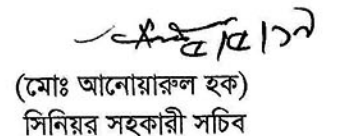 ৫/৫/১৭
(মোঃ আনোয়ারুল হক)
সিনিয়র সহকারী সচিব